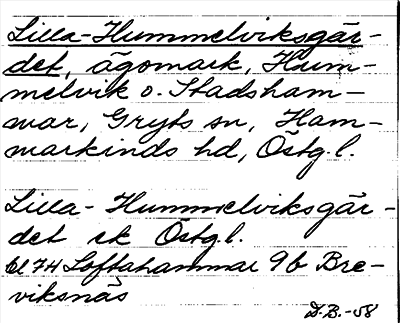 Lilla-Hummelviksgär-
det, ägomark, Hum-
melvik o. Stadsham-
mar, Gryts sn, Ham-
markinds hd, Östg.l.
Lilla-Hummelviksgär-
det ek Östg.l.
bl 74 Loftahammar 9b Bre-
viksnäs
D.B.-58